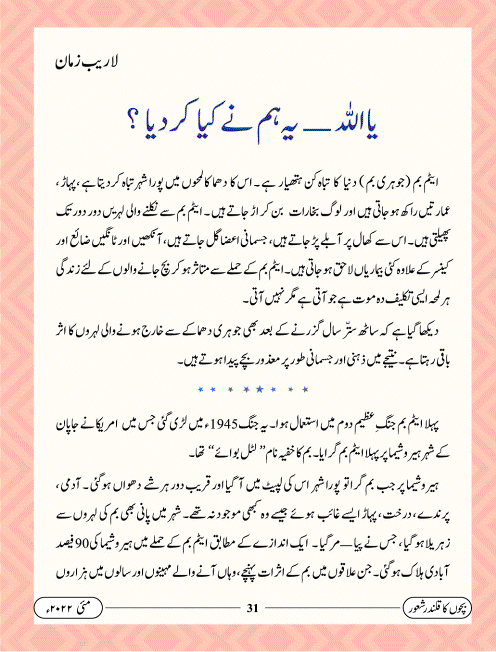 لاریب زمان
یا اللہ — یہ ہم نے کیا کر دیا ؟
ایٹم بم (جوہری بم) دنیا کا تباہ کن ہتھیار ہے۔ اس کا دھماکا لمحوں میں پورا شہر تباہ کر دیتا ہے، پہاڑ،
عمارتیں راکھ ہو جاتی ہیں اور لوگ بخارات بن کر اڑ جاتے ہیں۔ ایٹم بم سے نکلنے والی لہریں دور دور تک
پھیلتی ہیں۔ اس سے کھال پر آبلے پڑ جاتے ہیں، جسمانی اعضا گل جاتے ہیں، آنکھیں اور ٹانگیں ضائع اور
کینسر کے علاوہ کئی بیماریاں لاحق ہو جاتی ہیں۔ ایٹم بم کے حملے سے متاثر ہو کر بچ جانے والوں کے لئے زندگی
ہر لمحہ ایسی تکلیف دہ موت ہے جو آتی ہے مگر نہیں آتی۔
دیکھا گیا ہے کہ ساٹھ ستّر سال گزرنے کے بعد بھی جوہری دھماکے سے خارج ہونے والی لہروں کا اثر
باقی رہتا ہے۔ نتیجے میں ذہنی اور جسمانی طور پر معذور بچے پیدا ہوتے ہیں۔
پہلا ایٹم بم جنگِ عظیم دوم میں استعمال ہوا۔ یہ جنگ 1945ء میں لڑی گئی جس میں امریکا نے جاپان کے
شہر ہیروشیما پر پہلا ایٹم بم گرایا۔ بم کا خفیہ نام ”لٹل بوائے“ تھا۔
ہیروشیما پر جب بم گرا تو پورا شہر اس کی لپیٹ میں آگیا اور قریب دور ہر شے دھواں ہوگئی۔ آدمی،
پرندے، درخت، پہاڑ ایسے غائب ہوئے جیسے وہ کبھی موجود نہ تھے۔ شہر میں پانی بھی بم کی لہروں سے
زہریلا ہوگیا، جس نے پیا — مر گیا۔ ایک اندازے کے مطابق ایٹم بم کے حملے میں ہیروشیما کی 90 فیصد
آبادی ہلاک ہوگئی۔ جن علاقوں میں بم کے اثرات پہنچے، وہاں آنے والے مہینوں اور سالوں میں ہزاروں
بچوں کا قلندر شعور
31
مئی ۲۰۲۲ء